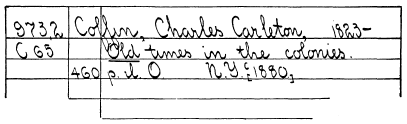 973.2 Coffin, Charles Carleton, 1823-
C 65 Old times in the colonies.
460 p. il. O N.Y. c1880,